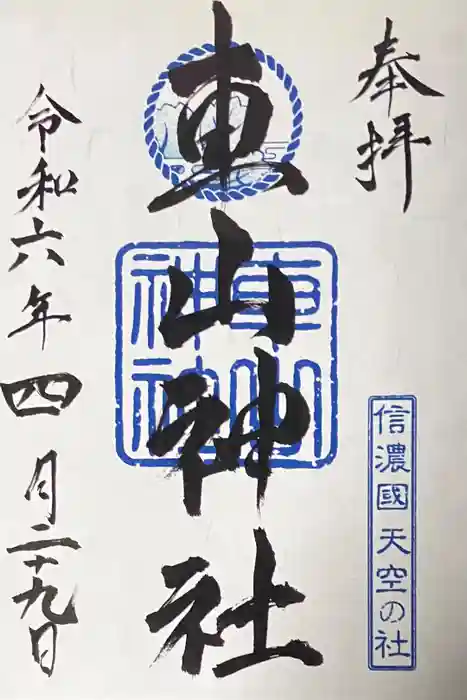 奉拝
信濃國 天空の社
車山神社
車山
神社
令和六年四月二十九日